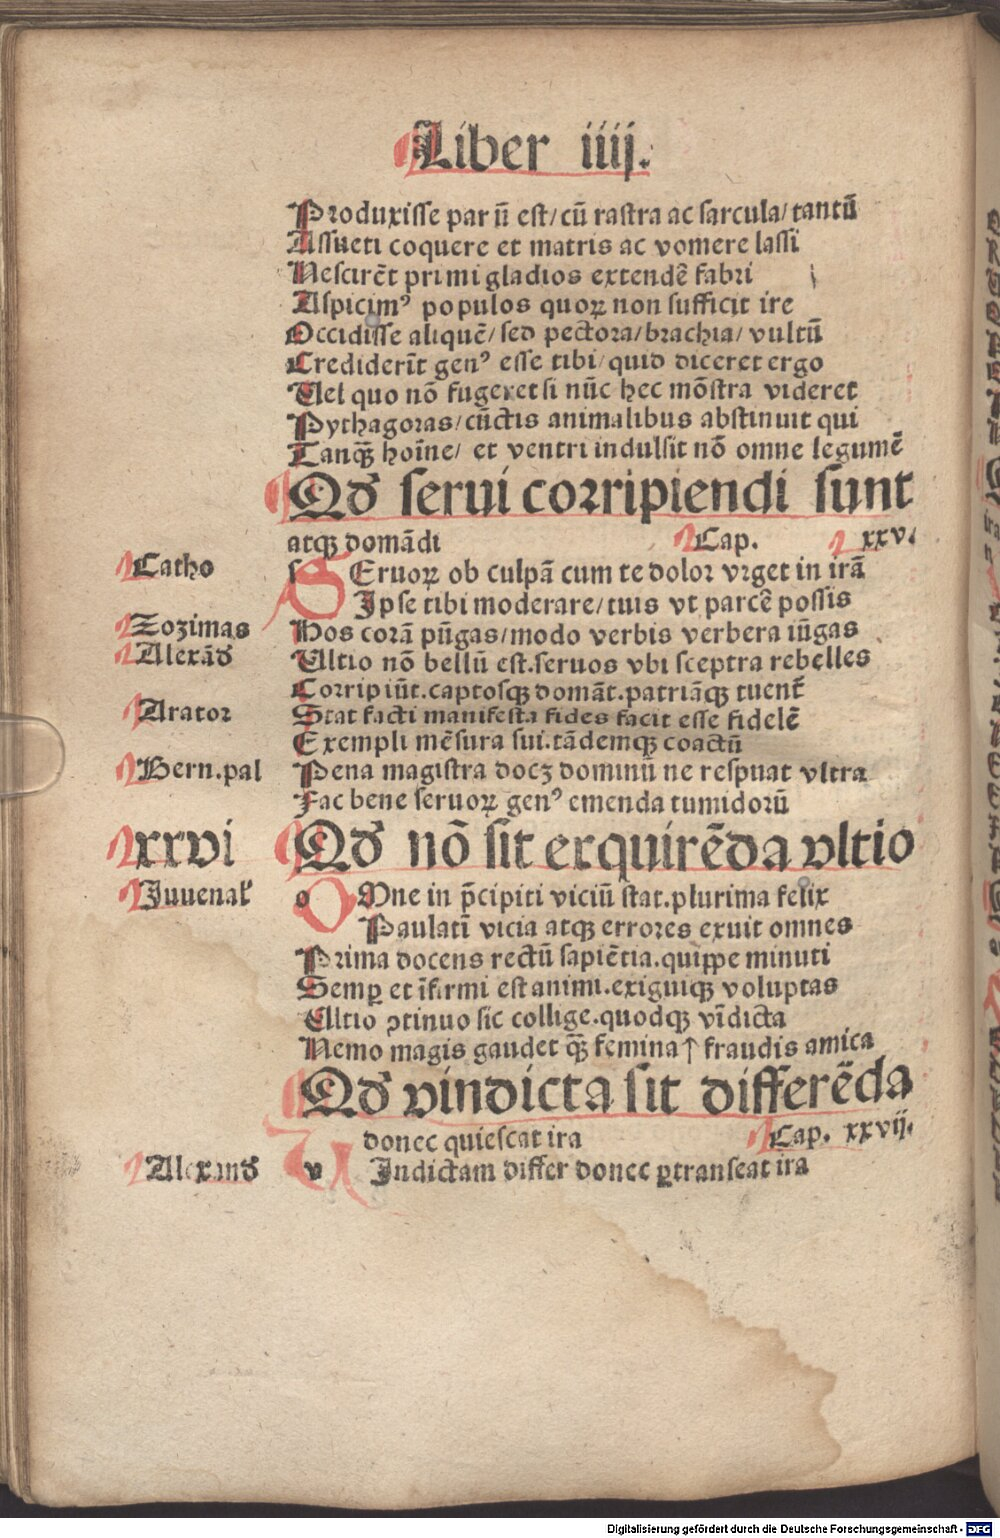 Liber iiij.
Produxisse par ū est/cū rastra ac sarcula/tantū
Assueti coquere et matris ac vomere lassi
Nescirēt primi gladios extendē fabri
Aspicimꝰ populos quoꝝ non sufficit ire
Occidisse aliquē/sed pectora/brachia/vultū
Crediderīt genꝰ esse cibi/quid diceret ergo
Uel quo nō fugeret si nūc hec mōstra videret
Pythagoras/cūctis animalibus abstinuit qui
Tanqꝫ hoīne/ et ventri indulsit nō omne legumē
Qd serui corripiendi sunt
atqꝫ domādi Cap. xxv.
Catho
s SEruoꝝ ob culpā cum te dolor vrget in irā
Ipse tibi moderare/tuis vt parcē possis
Zozimas
Hos corā pūgas/modo verbis verbera iūgas
Alexād
Ultio nō bellū est.seruos vbi sceptra rebelles
Corripiūt.captosqꝫ domāt.patriāqꝫ tuent̄
Arator
Stat facti manifesta fides facit esse fidelē
Exempli mēsura sui.tādemqꝫ coactū
Bern.pal
Pena magistra docꝫ dominū ne respuat vltra
Fac bene seruoꝝ genꝰ emenda tumidorū
xxvi
Qd nō sit exquirēda vltio
Juuenal
o OMne in p̄cipiti viciū stat.plurima felix
Paulatī vicia atqꝫ errores exuit omnes
Prima docens rectū sapiētia.quippe minuti
Semꝑ et īfirmi est animi.exiguiqꝫ voluptas
Ultio ꝯtinuo sic collige.quodqꝫ vīdicta
Nemo magis gaudet qꝫ̄ femina↑ fraudis amica
Qd vindicta sit differēda
donec quiescat ira Cap. xxvij.
Alexand
v VIndictam differ donec ꝑtranseat ira
Digitalisierung gefördert durch die Deutsche Forschungsgemeinschaft - DFG